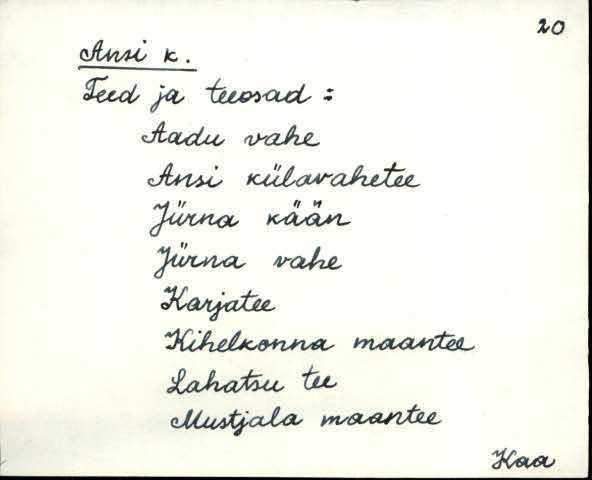 20
Ansi k.
Teed ja teeosad :
Aadu vahe
Ansi külavahetee
Jürna kään
Jürna vahe
Karjatee
Kihelkonna maantee
Lahatsu tee
Mustjala maantee
Kaa